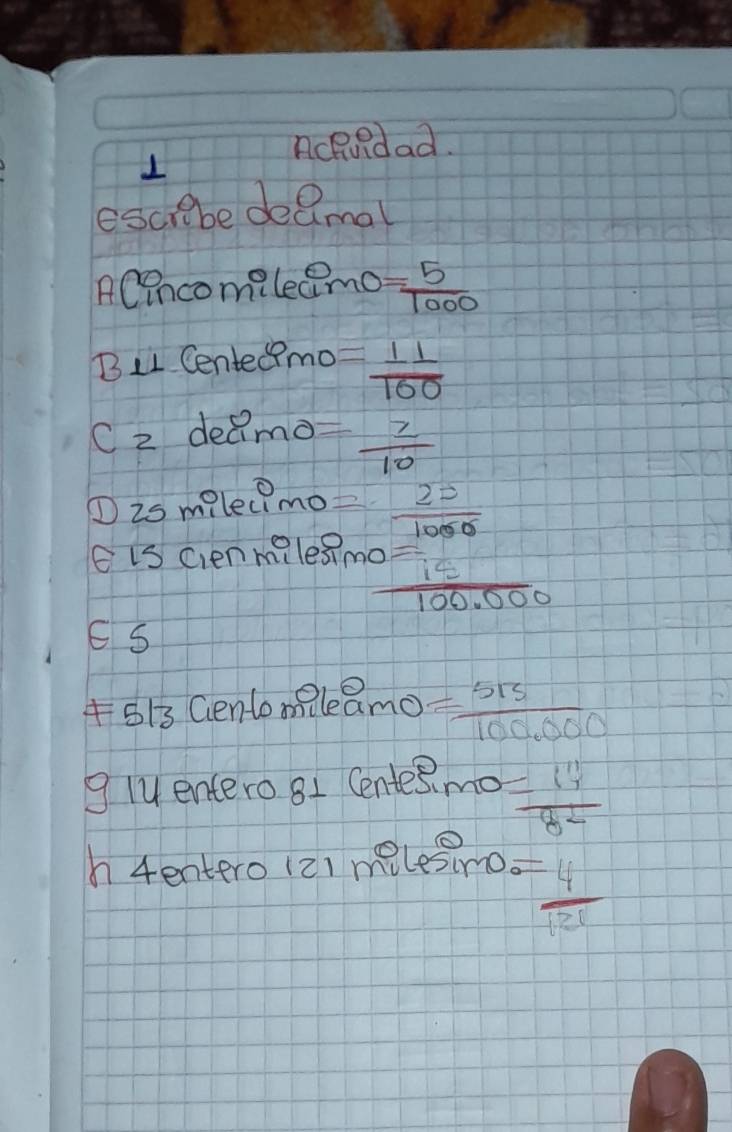 Actividad.
1
escribe decimal
A Cinco milecimo = 5/1000
B 11 Centecimo = 11/100
C 2 decimo = 2/10
D 25 milecimo = 25/1000
E 15 cien milesimo = 15/100.000
E 5
F 513 Ciento milecimo = 513/100.000
g 14 entero 81 Centesimo = 14/81
h 4 entero 121 milesimo. = 4/121